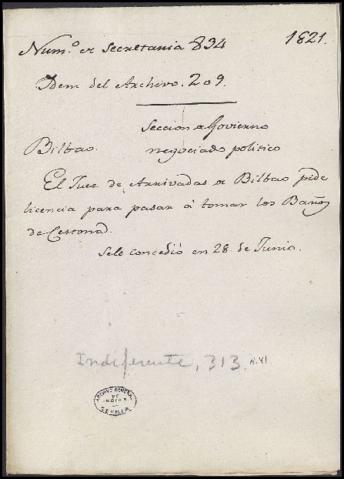 Num.º de Secretania 834 1821.
Idem del Archivo. 209.
Seccion de Govierno
Bilbao. negociado politico
El Juez de Arrivadas de Bilbao pide
licencia para pasar á tomar los Baños
de Cestona.
Se le concedió en 28. de Junio.
Indiferente, 313 R.41
ARCHIVO GENERAL
DE
INDIAS
SEVILLA